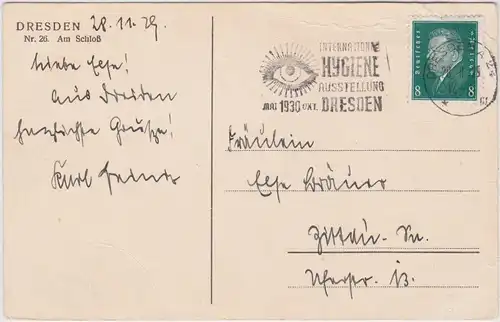 DRESDEN
Nr. 26. Am Schloß
28.11.29.
Liebe Else!
Aus Dresden
herzlichste Grüße!
Karl Heinz
INTERNATIONALE
HYGIENE
AUSSTELLUNG
MAI 1930 OKT. DRESDEN
Deutsches Reich
8 8
DRESDEN
Fräulein
Else Bräuer
Zittau-Sa.